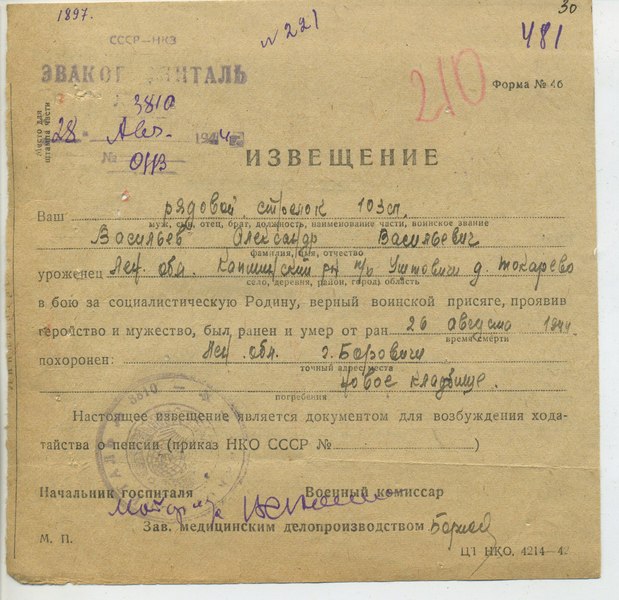 1897.
30
№ 221
481
СССР—НКЗ
ЭВАКОГОСПИТАЛЬ
210
Форма № 46
3810
Место для штампа части
28 Авг. 1944 г.
№ 0113
ИЗВЕЩЕНИЕ
Ваш рядовой стрелок 103сп.
муж, сын, отец, брат, должность, наименование части, воинское звание
Васильев Александр Васильевич
фамилия, имя, отчество
уроженец Лен. обл. р-н п/о д. Токарево
село, деревня, район, город, область
в бою за социалистическую Родину, верный воинской присяге, проявив
геройство и мужество, был ранен и умер от ран 26 августа 1944
время смерти
похоронен: Лен. обл. г. Боровичи
точный адрес места
новое кладбище.
погребения
Настоящее извещение является документом для возбуждения хода-
тайства о пенсии (приказ НКО СССР № )
Начальник госпиталя Военный комиссар
Майор
Зав. медицинским делопроизводством
М. П.
ЦТ НКО. 4214—4
3810